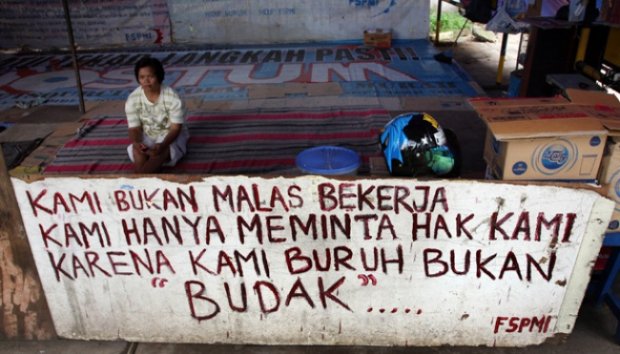 FSPMI
LANGKAH PASTI!!
KAMI BUKAN MALAS BEKERJA
KAMI HANYA MEMINTA HAK KAMI
KARENA KAMI BURUH BUKAN
"BUDAK".....
FSPMI